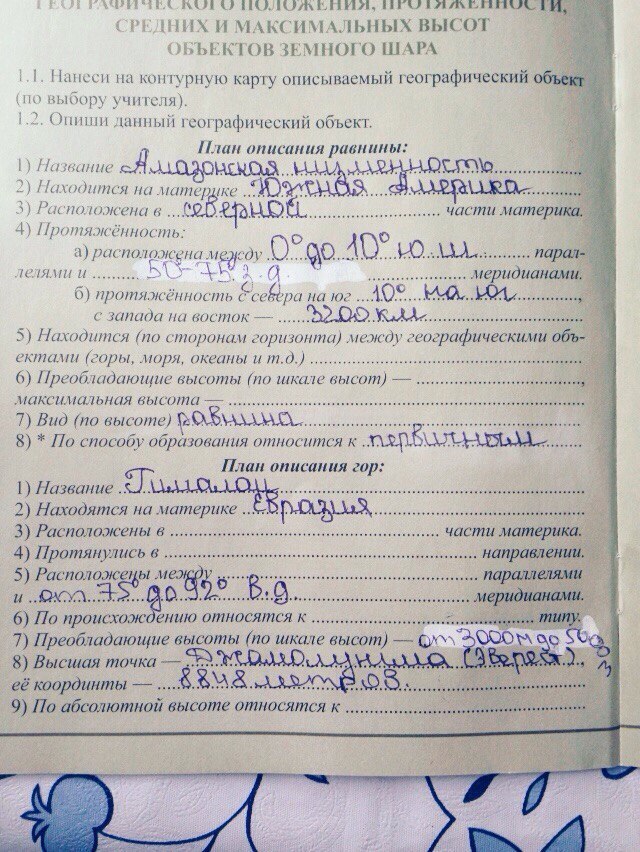 ГЕОГРАФИЧЕСКОГО ПОЛОЖЕНИЯ, ПРОТЯЖЕННОСТИ,
СРЕДНИХ И МАКСИМАЛЬНЫХ ВЫСОТ
ОБЪЕКТОВ ЗЕМНОГО ШАРА
1.1. Нанеси на контурную карту описываемый географический объект
(по выбору учителя).
1.2. Опиши данный географический объект.
План описания равнины:
1) Название Амазонская низменность
2) Находится на материке Южная Америка
3) Расположена в северной части материка.
4) Протяжённость:
а) расположена между 0° до 10° ю ш парал-
лелями и 50°-75° з.д. меридианами.
б) протяжённость с севера на юг 10° на юг,
с запада на восток — 3200 км
5) Находится (по сторонам горизонта) между географическими объ-
ектами (горы, моря, океаны и т.д.)
6) Преобладающие высоты (по шкале высот) — ,
максимальная высота —
7) Вид (по высоте) равнина
8) * По способу образования относится к первичным
План описания гор:
1) Название Гималаи
2) Находятся на материке Евразия
3) Расположены в части материка.
4) Протянулись в направлении.
5) Расположены между параллелями
и от 75° до 92° в.д. меридианами.
6) По происхождению относятся к типу.
7) Преобладающие высоты (по шкале высот) — от 3000м до 5000
8) Высшая точка — Джомолунгма (Эверест),
её координты — 8848 метров.
9) По абсолютной высоте относятся к